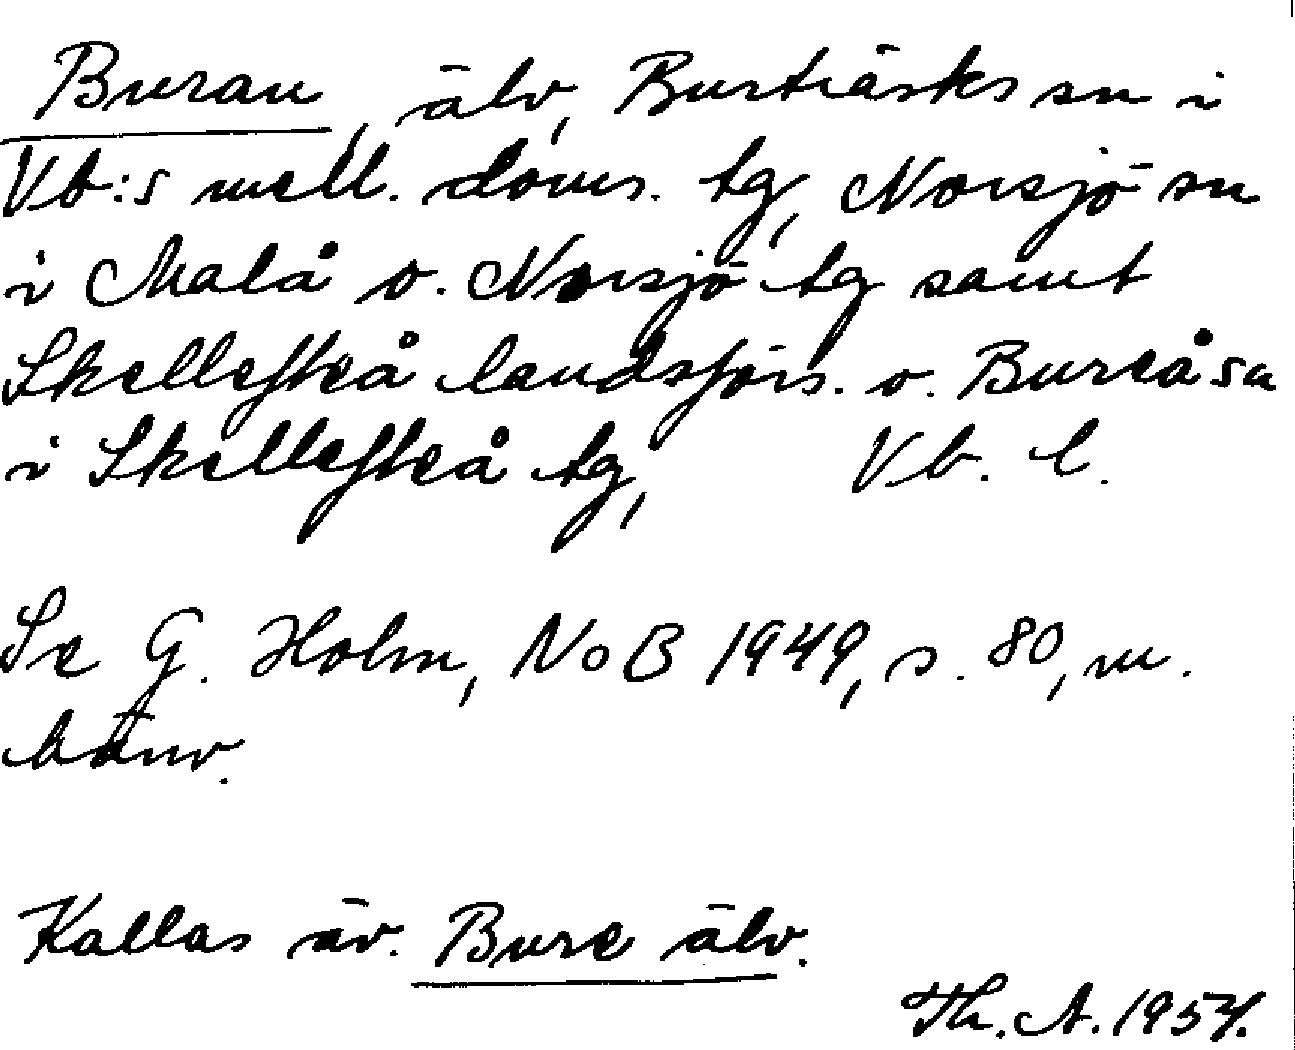 Buran, älv, Burträsks sn i
Vb:s mell. doms. tg, Norsjö sn
i Malå o. Norsjö tg samt
Skellefteå landsförs. o. Bureå sn
i Skellefteå tg, Vb. l.
Se G. Holm, NoB 1949, s. 80, m.
hänv.
Kallas äv. Bure älv.
Th. A. 1957.